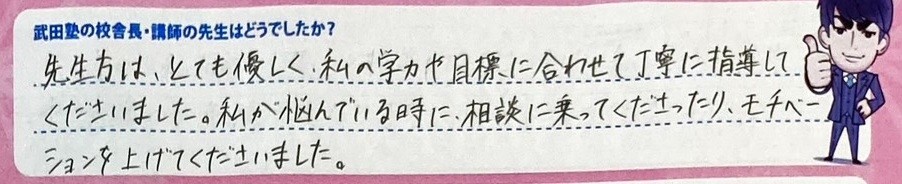 武田塾の校舎長・講師の先生はどうでしたか?
先生方は、とても優しく、私の学力や目標に合わせて丁寧に指導して
くださいました。私が悩んでいる時に、相談に乗ってくださったり、モチベー
ションを上げてくださいました。